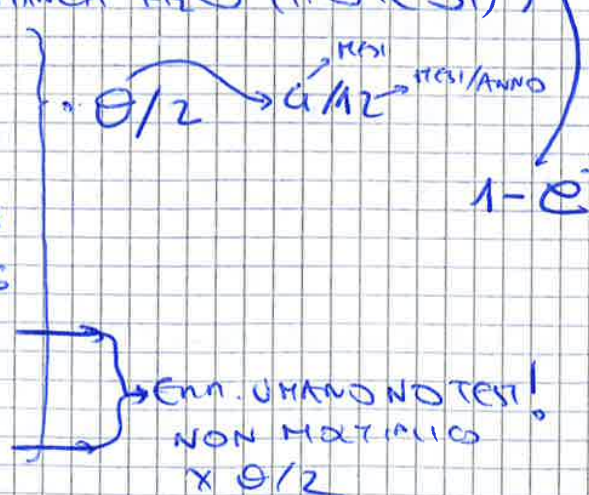 MESI
· θ/2 → 4/12 → MESI/ANNO
1-e
ERR. UMANO NO TEST!
NON MOLTIPLICO
x θ/2